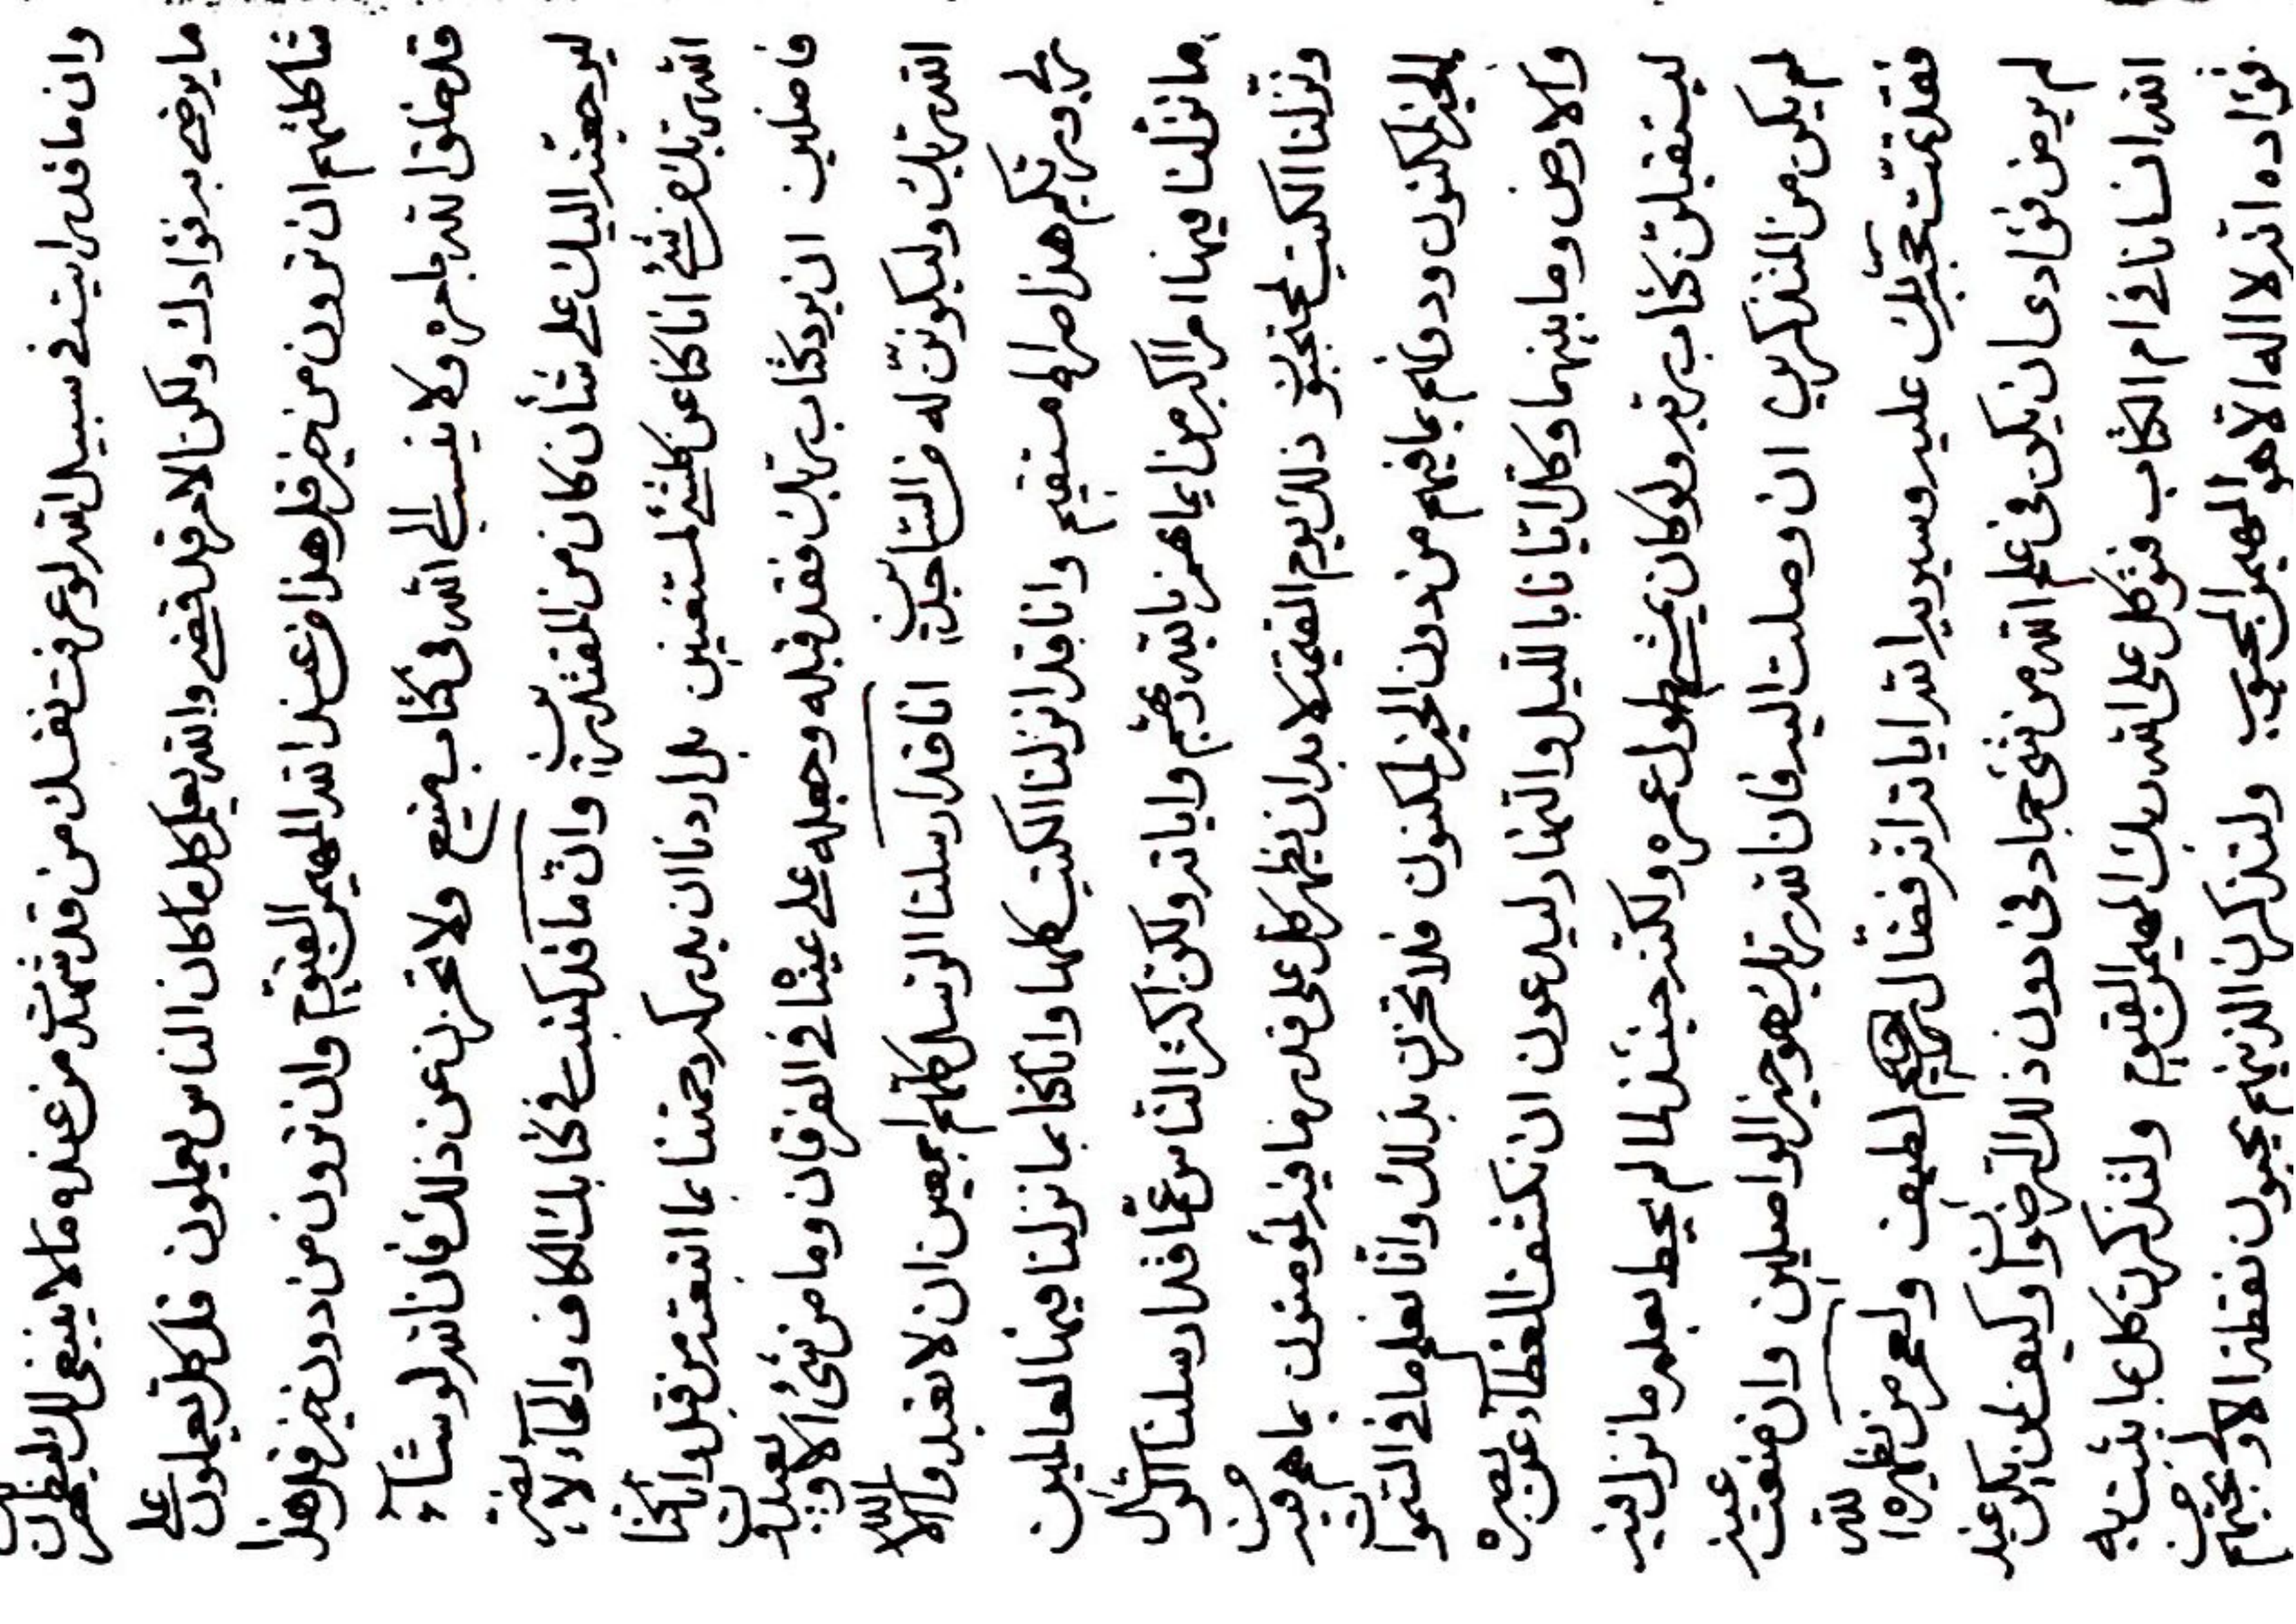 وان ما قد رايت في سبيل الله لو عرفت نفسك من قد شهدت من عنده ما لا ينبغي لك ليظهرن
ما يرضى به فؤادك ولكن الامر قد قضى والله يعلم كل ما كان الناس يعملون قل كل تعملون على
شاكلتهم ان ترون من خير قل هذا من عند الله المهيمن القيوم وان ترون من دون خير قل هذا
قد خلق الله بامره ولا ينسب الى الله في كتاب منيع ولا تحزنن عن ذلك فان الله لو شآء
ليرجعنه اليك على شأن كان من المقتدرين وان ما قد كنت في كتابك الكاف والحآء لا يغير
الله ربك من شئ انا كنا عن كلشئ لمستغنين بل اردنا ان يدركه رحمتنا بما اتبعته من قبل وانا كنا
فاضلين ان يرد كتاب ربك فقد قبله وجعله على عينا في الفرقان وما من شئ الا وليعبدن
الله ربك وليكونن له من الساجدين انا قد ارسلنا الرسل كلهم اجمعين ان لا تعبدوا الا الله
ربي وربكم هذا صراط مستقيم وانا قد انزلنا الكتب كلها وانا كنا بما نزلنا فيها لعالمين
ما نزلنا فيها امرا اكبر من ايمانهم بالله ربهم واياته ولكن اكثر الناس عما قد ارسلنا الرسل
ونزلنا الكتب لمحتجبون ذلك يوم القيمة لا بد ان يظهر كل على قدر ما فيه لمؤمنون بما هم فيه من
الخير المكنون ودونهم بما فيهم من دون الخير المكنون فلا تحزن بذلك وانا نعلم ما في السموات
والارض وما بينهما وكل ايانا بالليل والنهار ليدعون ان نكشف الغطآء عن بصره
ليستقبلن كتاب ربه ولو كان يمشي طول عمره ولكنه حينئذ لما لم يحيط بعلمه ما نزل فيه
لم يكن من المتذكرين ان وصلت اليه فان الله ربك هو خير الواصلين وان منعت عنه
فقد تمت حجة ربك عليه وسيريه الله اياته انه فضال حكيم لطيف ولعمر من يظهره الله
لم يرض فؤادى ان يكن في علم الله من شئ جماد في دون ذلك الرضوان وكيف لن يكن عبد
الله انسانا في ام الكتاب فتوكل على الله ربك المهيمن القيوم ولتذكرن كل ما به
فؤاده انه لا اله الا هو المهيمن المحبوب ولتذكرن الذينهم يحبون نقطة الاولى بحبهم من